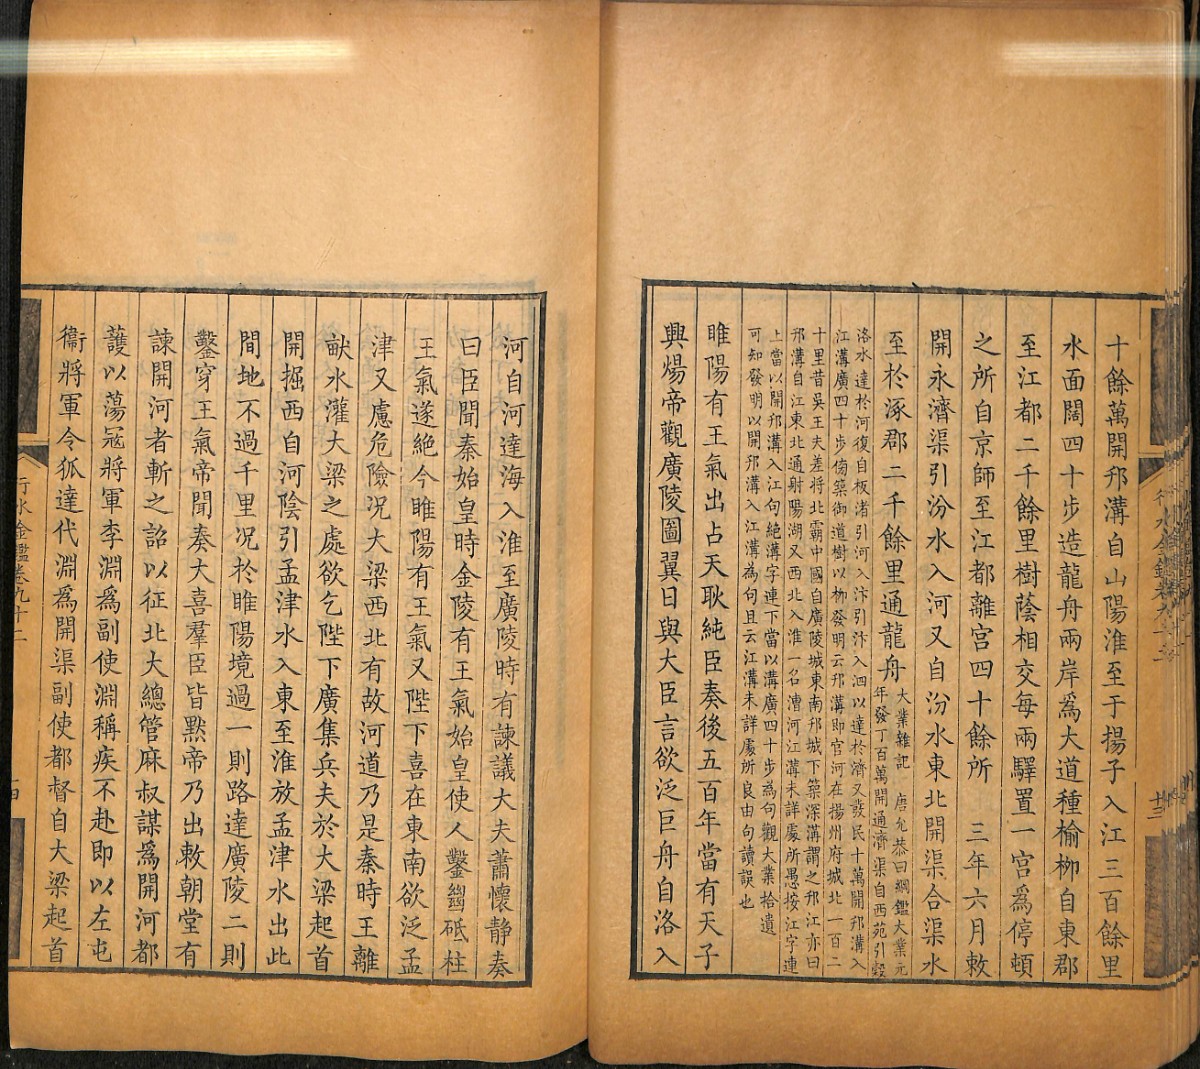 十餘萬開邗溝自山陽淮至于揚子入江三百餘里
水面闊四十步造龍舟兩岸爲大道種榆栁自東郡
至江都二千餘里樹蔭相交每兩驛置一宮爲停頓
之所自京師至江都離宮四十餘所　三年六月敕
開永濟渠引汾水入河又自汾水東北開渠合渠水
至於涿郡二千餘里通龍舟
大業雜記　唐允恭曰綱鑑大業元
年發丁百萬開通濟渠自西苑引穀
洛水達於河復自板渚引河入汴引汴入泗以達於濟又發民十萬開邗溝入
江溝廣四十步傍築御道樹以栁發明云邗溝即官河在揚州府城北一百二
十里昔吳王夫差將北霸中國自廣陵城東南邗城下築深溝謂之邗江亦曰
邗溝自江東北通射陽湖又西北入淮一名漕河江溝未詳處所愚按江字連
上當以開邗溝入江句絶溝字連下當以溝廣四十步為句觀大業拾遺
可知發明以開邗溝入江溝為句且云江溝未詳處所良由句讀誤也
睢陽有王氣出占天耿純臣奏後五百年當有天子
興煬帝觀廣陵圖翼日與大臣言欲泛巨舟自洛入
行水金鑑卷九十二
十三
河自河達海入淮至廣陵時有諫議大夫蕭懷静奏
曰臣聞秦始皇時金陵有王氣始皇使人鑿斷砥柱
王氣遂絶今睢陽有王氣又陛下喜在東南欲泛孟
津又慮危險况大梁西北有故河道乃是秦時王離
畎水灌大梁之處欲乞陛下廣集兵夫於大梁起首
開掘西自河陰引孟津水入東至淮放孟津水出此
間地不過千里况於睢陽境過一則路達廣陵二則
鑿穿王氣帝聞奏大喜羣臣皆默帝乃出敕朝堂有
諫開河者斬之詔以征北大總管麻叔謀爲開河都
護以蕩寇將軍李淵爲副使淵稱疾不赴即以左屯
衞將軍令狐達代淵爲開渠副使都督自大梁起首
行水金鑑卷九十二
十四